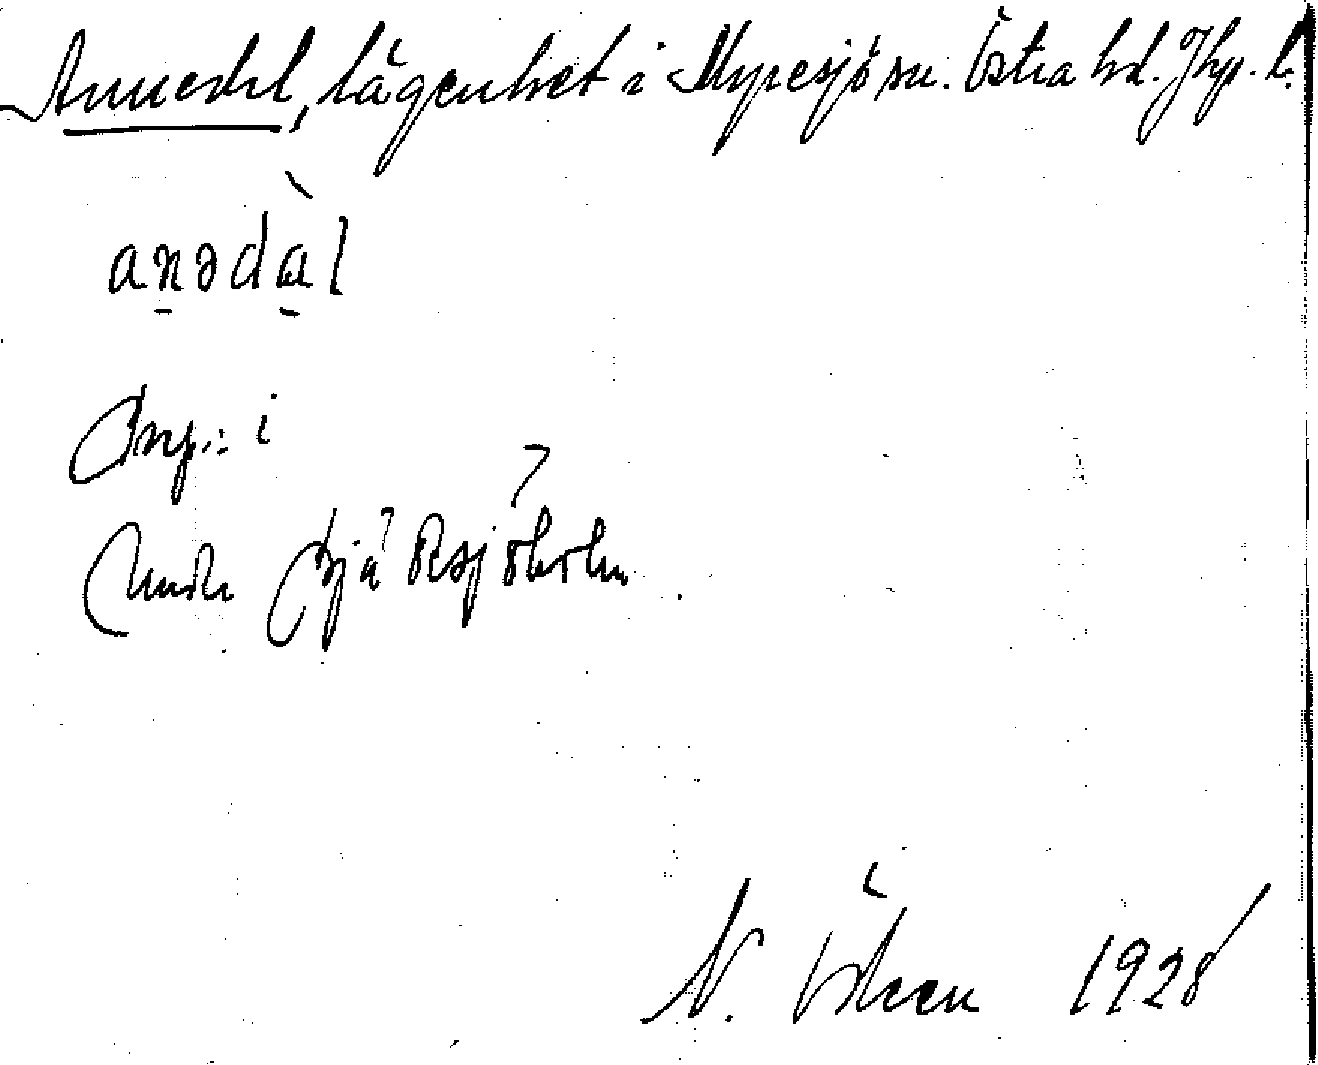 Annedal, lägenhet i Myresjö sn. Östra hd. Jkp. l.
anədàl
Prep.: i
Under Fjäresjöholm
N. Ödeen 1928